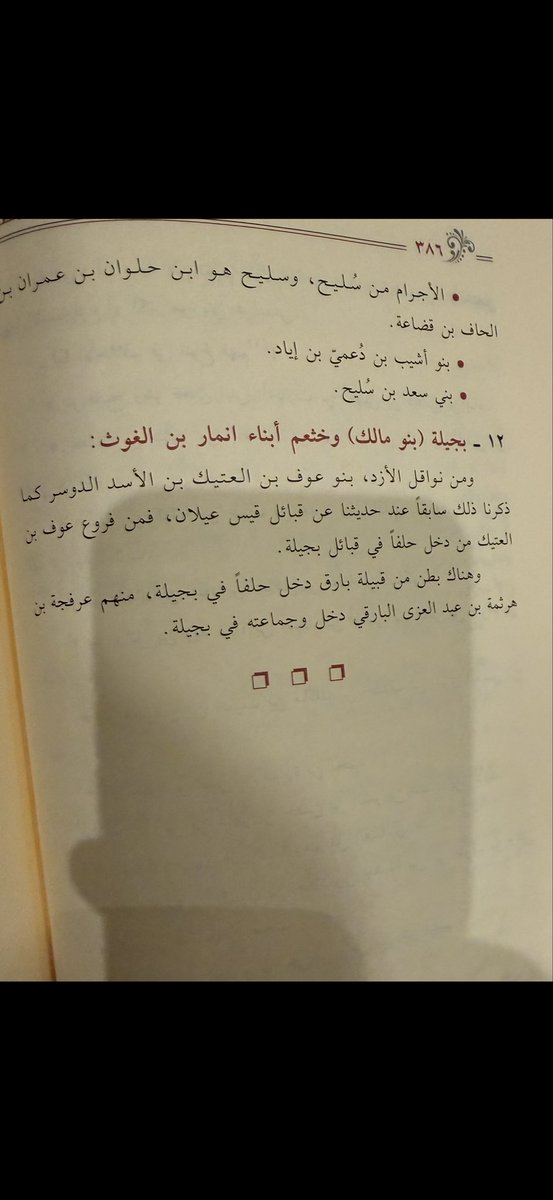 ٣٨٦
• الأجرام من سُليح، وسليح هو ابن حلوان بن عمران بن
الحاف بن قضاعة.
• بنو أشيب بن دُعميّ بن إياد.
• بني سعد بن سُليح.
١٢ ـ بجيلة (بنو مالك) وخثعم أبناء انمار بن الغوث:
ومن نواقل الأزد، بنو عوف بن العتيك بن الأسد الدوسر كما
ذكرنا ذلك سابقاً عند حديثنا عن قبائل قيس عيلان، فمن فروع عوف بن
العتيك من دخل حلفاً في قبائل بجيلة.
وهناك بطن من قبيلة بارق دخل حلفاً في بجيلة، منهم عرفجة بن
هرثمة بن عبد العزى البارقي دخل وجماعته في بجيلة.